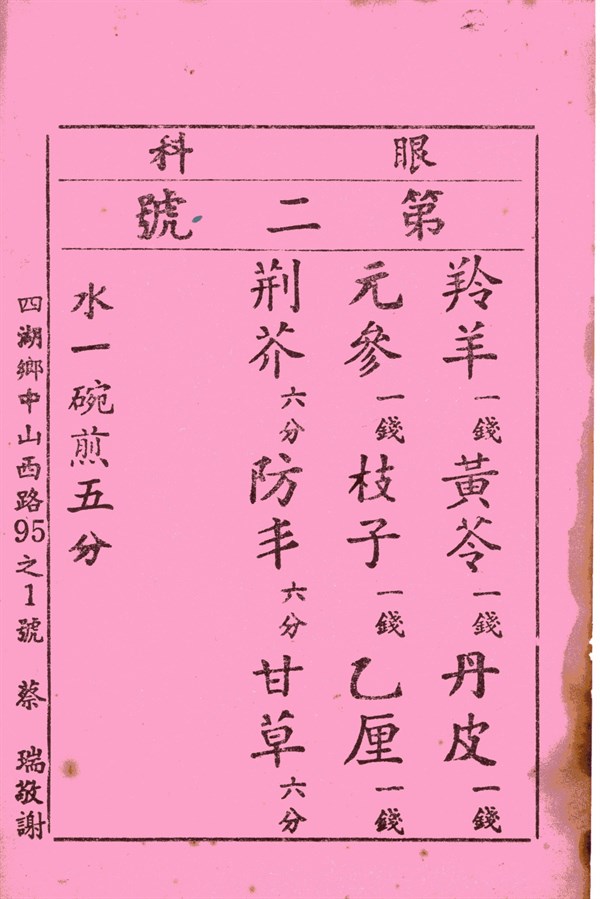 眼科
第二號
羚羊一錢黃芩一錢丹皮一錢
元參一錢枝子一錢乙厘一錢
荆芥六分防丰六分甘草六分
水一碗煎五分
四湖鄉中山西路95之1號 蔡瑞敬謝